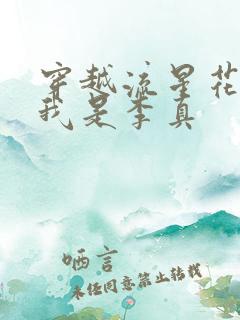 穿越流星花
我是李真
哂言
未经同意禁止转载